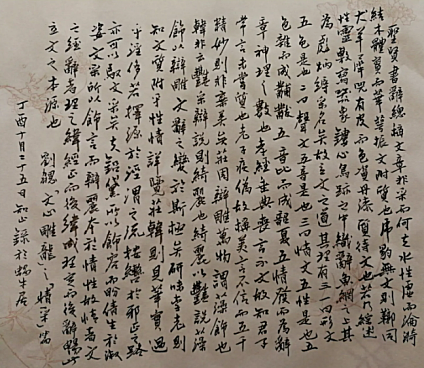 聖賢書辭總稱文章非采而何夫水性虛而淪漪
結木體實而華萼振文附質也虎豹無文則鞹同
犬羊犀兕有皮而色資丹漆質待文也若乃綜述
性靈敷寫器象鏤心鳥跡之中織辭魚網之上其
為彪炳縟采名矣故立文之道其理有三一曰形文
五色是也二曰聲文五音是也三曰情文五性是也五
色雜而成黼黻五音比而成韶夏五情發而為辭
章神理之數也孝經垂典喪言不文故知君子
常言未嘗質也老子疾偽故稱美言不信而五千
精妙則非棄美矣莊周辯雕萬物謂藻飾也
韓非云艷采辯說謂綺麗也綺麗以艷說藻
飾以辯雕文辭之變於斯極矣研味李老則
知文質附乎性情詳覽莊韓則見華實過
乎淫侈若擇源於涇渭之流按轡於邪正之路
亦可以馭文采矣夫鉛黛所以飾容而盼倩生於淑
姿文采所以飾言而辯麗本於情性故情者文
之經辭者理之緯經正而後緯成理定而後辭暢此
立文之本源也 劉勰文心雕龍之情采篇
丁酉十月二十五日知止錄於蝸牛居